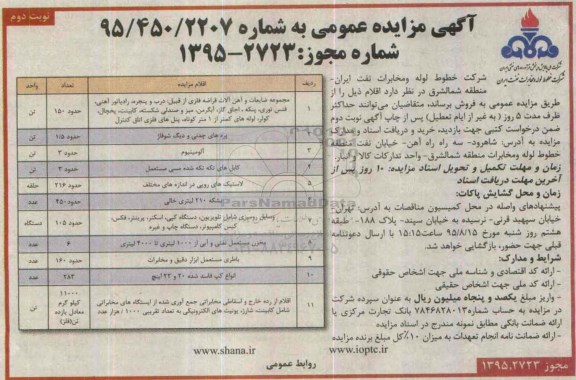 نوبت دوم
آگهی مزایده عمومی به شماره ۹۵/۴۵۰/۲۲۰۷
شماره مجوز: ۲۷۲۳-۱۳۹۵
شرکت خطوط لوله ومخابرات نفت ایران-
منطقه شمالشرق در نظر دارد اقلام ذیل را از
طریق مزایده عمومی به فروش برساند، متقاضیان می‌توانند حداکثر
ظرف مدت ۵ روز (به غیر از ایام تعطیل) پس از چاپ آگهی نوبت دوم
ضمن درخواست کتبی جهت بازدید، خرید و دریافت اسناد و مدارک
مزایده به آدرس: شاهرود- سه راه راه آهن- خیابان نفت-
خطوط لوله ومخابرات منطقه شمالشرق- واحد تدارکات کالا وانبار.
زمان و مهلت تکمیل و تحویل اسناد مزایده: ۱۰ روز پس از
آخرین مهلت دریافت اسناد
زمان و محل گشایش پاکات:
پیشنهادهای واصله در محل کمیسیون مناقصات به آدرس- تهران-
خیابان سپهبد قرنی- نرسیده به خیابان سپند- پلاک ۱۸۸- طبقه
هشتم روز شنبه مورخ ۹۵/۸/۱۵ ساعت ۱۵:۱۵ با ارسال دعوتنامه
قبلی جهت حضور، بازگشایی خواهد شد.
شرایط و مدارک:
- ارائه کد اقتصادی و شناسه ملی جهت اشخاص حقوقی
- ارائه کد ملی جهت اشخاص حقیقی
- واریز مبلغ یکصد و پنجاه میلیون ریال به عنوان سپرده شرکت
در مزایده به حساب شماره ۷۸۴۶۸۲۸۰۱۳ بانک تجارت مرکزی یا
ارائه ضمانت بانکی مطابق نمونه مندرج در اسناد مزایده
- ارائه ضمانت نامه انجام تعهدات به میزان ۱۰٪ کل مبلغ برنده مزایده
ردیف اقلام مزایده تعداد واحد
۱ مجموعه ضایعات و آهن آلات قراضه فلزی از قبیل: درب و پنجره، رادیاتور آهنی، فنس توری، پنکه، اجاق گاز، آبگرمکن، میز و صندلی شکسته، کابینت، یخچال، کولر، لوله های کمتر از ۱ متر کوتاه، پنل های فلزی اتاق کنترل حدود ۱۵۰ تن
۲ پره های چدنی و دیگ شوفاژ حدود ۱/۵ تن
۳ آلومینیوم حدود ۳ تن
۴ کابل های تکه تکه شده مسی مستعمل حدود ۳ تن
۵ لاستیک های رویی در اندازه های مختلف حدود ۲۱۶ حلقه
۶ بشکه ۲۱۰ لیتری خالی حدود ۴۵۰ عدد
۷ وسایل رومیزی شامل تلویزیون، دستگاه کپی، اسکنر، پرینتر، فکس، کیس کامپیوتر، دستگاه چاپ و غیره حدود ۱۰۵ دستگاه
۸ مخزن مستعمل نفتی و آبی از ۱۰۰۰ لیتری تا ۴۰۰۰ لیتری ۶ عدد
۹ باطری مستعمل ابزار دقیق و مخابرات حدود ۱۶۰ عدد
۱۰ انواع کپ فاسد شده ۲۰ و ۲۲ اینچ ۲۸۳ عدد
۱۱ اقلام از رده خارج و اسقاطی مخابراتی جمع آوری شده از ایستگاه های مخابراتی شامل کابینت، شارژر، یونیت های الکترونیکی به تعداد تقریبی ۱۰۰۰ / هزار عدد ۱۱۰۰۰ کیلو گرم معادل یازده تن(فلز) تن
www.shana.ir
www.ioptc.ir
روابط عمومی
مجوز ۱۳۹۵.۲۷۲۳